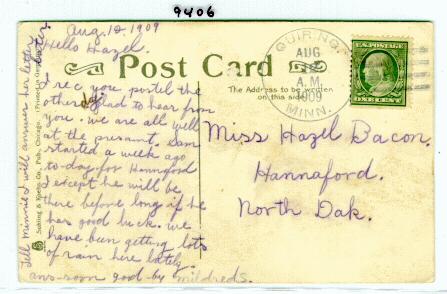 9406
Aug. 12, 1909
Hello Hazel.
I rec you postel the
other day glad to hear from
you. we are all well
at the present. Sam
started a week ago
to-day for Hannaford
I except he will be
there before long if he
has good luck. we
have been getting lots
of rain here lately.
ans-soon good-by mildred S.
Tell Minnie I will answer her letter
Post Card
The Address to be written
on this side
QUIRING
AUG
12
A.M.
1909
MINN.
U.S. POSTAGE
ONE CENT
Miss Hazel Bacon.
Hannaford.
North Dak.
Pub., Chicago. (Printed in Germany)